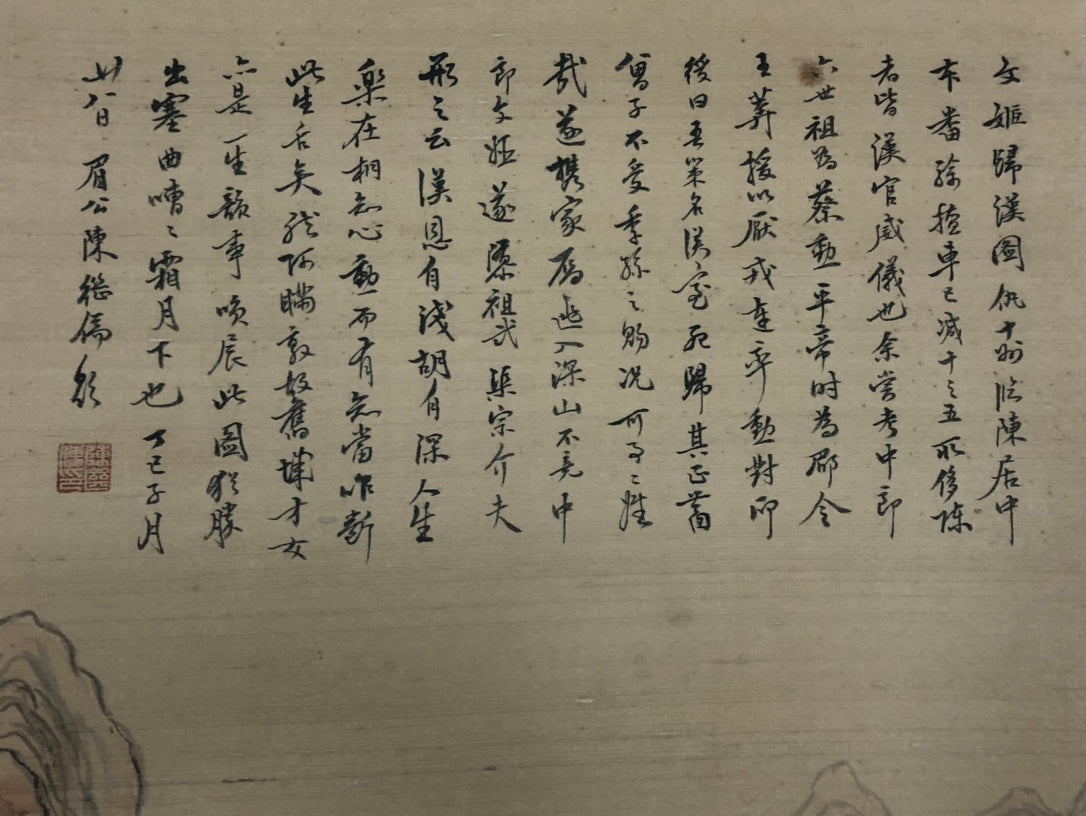 文姬歸漢圖仇十洲臨陳居中
本蕃騎擅車已減十之五所侈陳
者皆漢官威儀也余嘗考中郎
六世祖為蔡勳平帝時為郿令
王莽授以厭戎連率勳對印
綬曰吾策名漢室死歸其正昔
曾子不受季孫之賜況可事二姓
哉遂携家屬逃入深山不意中
郎文姬遂隳祖武渠宗介夫
形之云漢恩自淺胡自深人生
樂在相知心動而有知當咋斷
此生舌矣然阿瞞敦故舊憐才女
亦是一生韻事噢展此圖猶勝
出塞曲嘈嘈霜月下也 丁巳子月
廿八日 眉公陳繼儒題